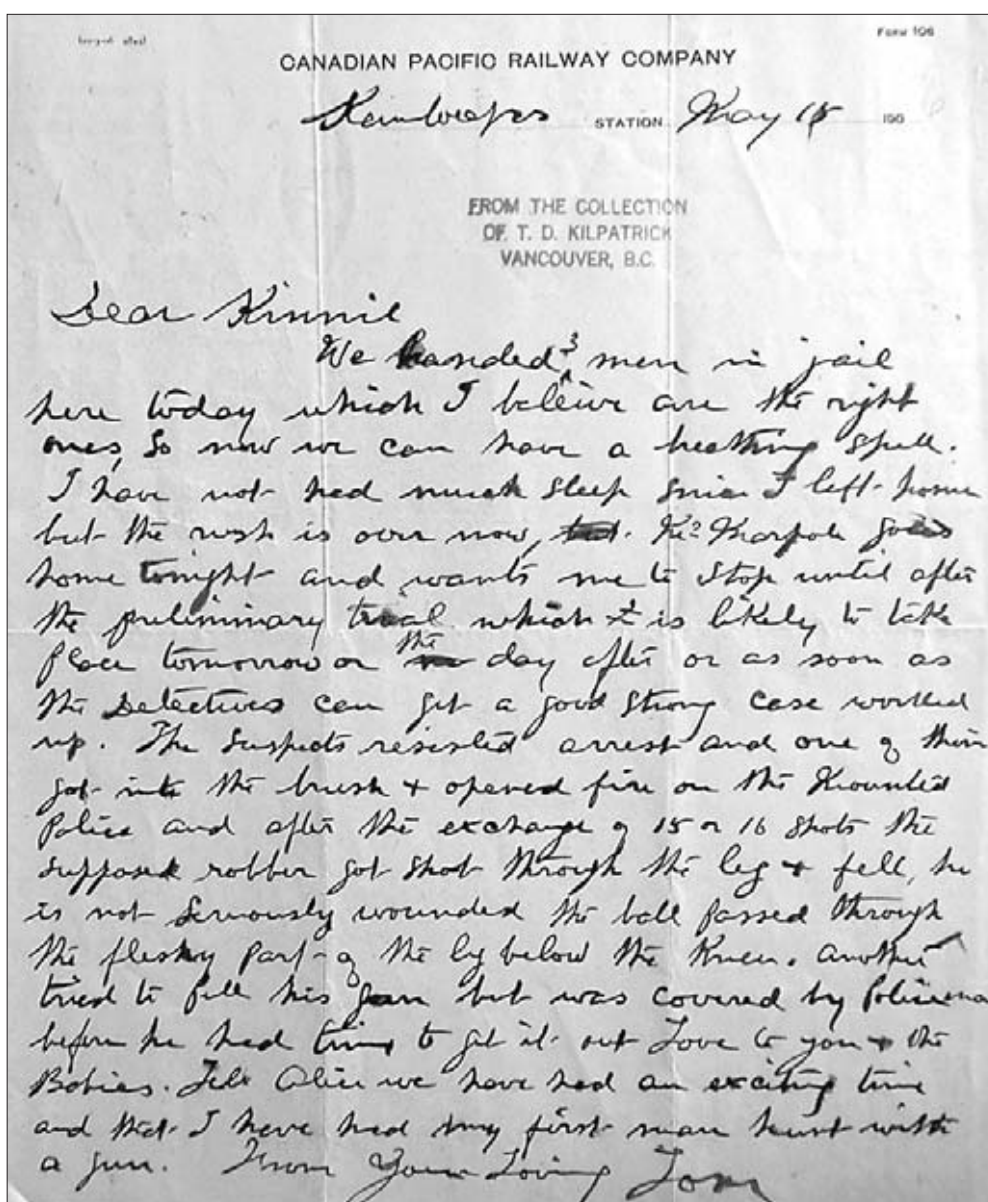 Form 106
CANADIAN PACIFIC RAILWAY COMPANY
Kamloops STATION May 15 190 6
FROM THE COLLECTION
OF T. D. KILPATRICK
VANCOUVER, B.C.
Dear Kinnie
We handed 3 men in jail
here today which I beleive are the right
ones, So now we can have a breathing spell.
I have not had much sleep since I left home
but the rush is over now, Mr Marpole goes
home tonight and wants me to stop until after
the preliminary trial which it is likely to take
place tomorrow or the day after or as soon as
the Detectives can get a good strong case worked
up. The suspects resisted arrest and one of them
got into the brush + opened fire on the Mounted
Police and after the exchange of 15 or 16 shots the
supposed robber got shot through the leg + fell, he
is not seriously wounded the ball passed through
the fleshy part of the leg below the Knee. another
tried to pull his gun but was covered by Policeman
before he had time to get it out Love to you + the
Babies. Tell Alice we have had an exciting time
and that I have had my first man hunt with
a gun. From Your Loving Tom